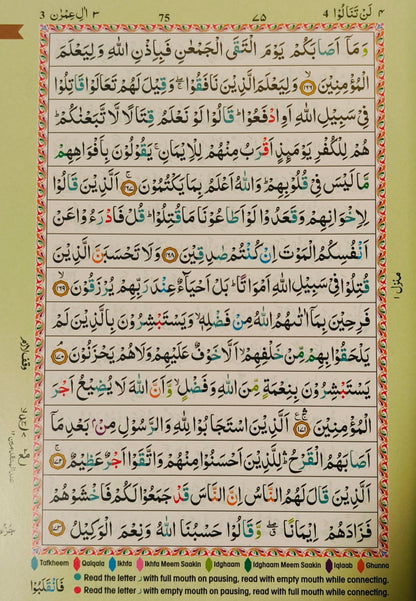 ٤ لَنْ تَنَالُوْا 4 ٧٥ 75 ٣ اٰلِ عِمْرٰن 3
وَمَاۤ اَصَابَكُمْ يَوْمَ الْتَقَى الْجَمْعٰنِ فَبِاِذْنِ اللّٰهِ وَلِيَعْلَمَ
الْمُؤْمِنِيْنَ ۙ‏﴿١٦٦﴾ وَلِيَعْلَمَ الَّذِيْنَ نَافَقُوْا ۖۚ وَقِيْلَ لَهُمْ تَعَالَوْا قَاتِلُوْا
فِىْ سَبِيْلِ اللّٰهِ اَوِ ادْفَعُوْا ؕ قَالُوْا لَوْ نَعْلَمُ قِتَالًا لَّا تَّبَعْنٰكُمْ ؕ
هُمْ لِلْكُفْرِ يَوْمَئِذٍ اَقْرَبُ مِنْهُمْ لِلْاِيْمَانِ ۚ يَقُوْلُوْنَ بِاَفْوَاهِهِمْ
مَّا لَيْسَ فِىْ قُلُوْبِهِمْ ؕ وَاللّٰهُ اَعْلَمُ بِمَا يَكْتُمُوْنَ ۚ‏﴿١٦٧﴾ اَلَّذِيْنَ قَالُوْا
لِاِخْوَانِهِمْ وَقَعَدُوْا لَوْ اَطَاعُوْنَا مَا قُتِلُوْا ؕ قُلْ فَادْرَءُوْا عَنْ
اَنْفُسِكُمُ الْمَوْتَ اِنْ كُنْتُمْ صٰدِقِيْنَ ‏﴿١٦٨﴾ وَلَا تَحْسَبَنَّ الَّذِيْنَ
قُتِلُوْا فِىْ سَبِيْلِ اللّٰهِ اَمْوَاتًا ؕ بَلْ اَحْيَآءٌ عِنْدَ رَبِّهِمْ يُرْزَقُوْنَ ۙ‏﴿١٦٩﴾
فَرِحِيْنَ بِمَاۤ اٰتٰٮهُمُ اللّٰهُ مِنْ فَضْلِهٖ ۙ وَيَسْتَبْشِرُوْنَ بِالَّذِيْنَ لَمْ
يَلْحَقُوْا بِهِمْ مِّنْ خَلْفِهِمْ ۙ اَلَّا خَوْفٌ عَلَيْهِمْ وَلَا هُمْ يَحْزَنُوْنَ ۘ‏﴿١٧٠﴾
يَسْتَبْشِرُوْنَ بِنِعْمَةٍ مِّنَ اللّٰهِ وَفَضْلٍ ۙ وَّاَنَّ اللّٰهَ لَا يُضِيْعُ اَجْرَ
الْمُؤْمِنِيْنَ ۛۚ‏﴿١٧١﴾ اَلَّذِيْنَ اسْتَجَابُوْا لِلّٰهِ وَالرَّسُوْلِ مِنْۢ بَعْدِ مَاۤ
اَصَابَهُمُ الْقَرْحُ ۛؕ لِلَّذِيْنَ اَحْسَنُوْا مِنْهُمْ وَاتَّقَوْا اَجْرٌ عَظِيْمٌ ۚ‏﴿١٧٢﴾
اَلَّذِيْنَ قَالَ لَهُمُ النَّاسُ اِنَّ النَّاسَ قَدْ جَمَعُوْا لَكُمْ فَاخْشَوْهُمْ
فَزَادَهُمْ اِيْمَانًا ۖۗ وَّقَالُوْا حَسْبُنَا اللّٰهُ وَنِعْمَ الْوَكِيْلُ ‏﴿١٧٣﴾
منزل ١
وقف لازم
Tafkheem Qalqala Ikhfa Ikhfa Meem Saakin Idghaam Idghaam Meem Saakin Iqlaab Ghunna
Read the letter ر with full mouth on pausing, read with empty mouth while connecting.
Read the letter ر with empty mouth on pausing, read with full mouth while connecting.
فَانْقَلَبُوْا